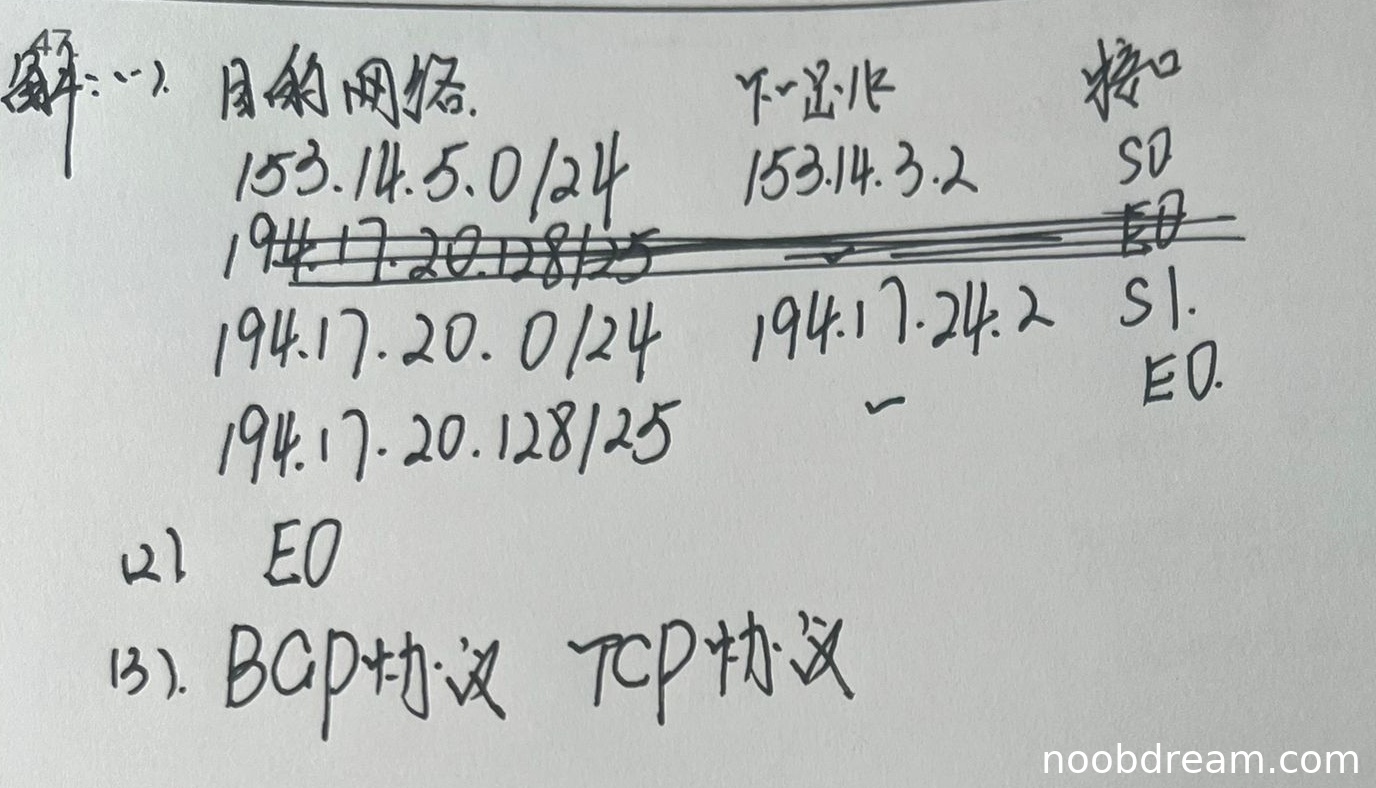 47
解: (1). 目的网络. 下一跳 接口
153.14.5.0/24 153.14.3.2 S0
194.17.20.128/25 - E0
194.17.20.0/24 194.17.24.2 S1.
194.17.20.128/25 - E0.
(2) E0
(3). BGP协议 TCP协议
noobdream.com